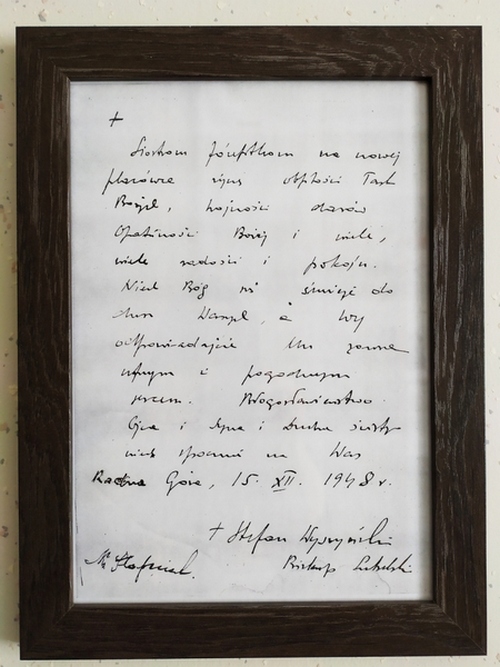 +
Siostrom Józefitkom na nowej
placówce życzę obfitości Łask
Bożych, hojności darów
Opatrzności Bożej i wiele,
wiele radości i pokoju.
Niech Bóg się śmieje do
dusz Waszych, a Wy
odpowiadajcie Mu zawsze
ufnym i pogodnym
sercem. Błogosławieństwo
Ojca i Syna i Ducha świętego
niech spocznie na Was
Radna Góra, 15. XII. 1948 r.
+ Stefan Wyszyński
Biskup Lubelski